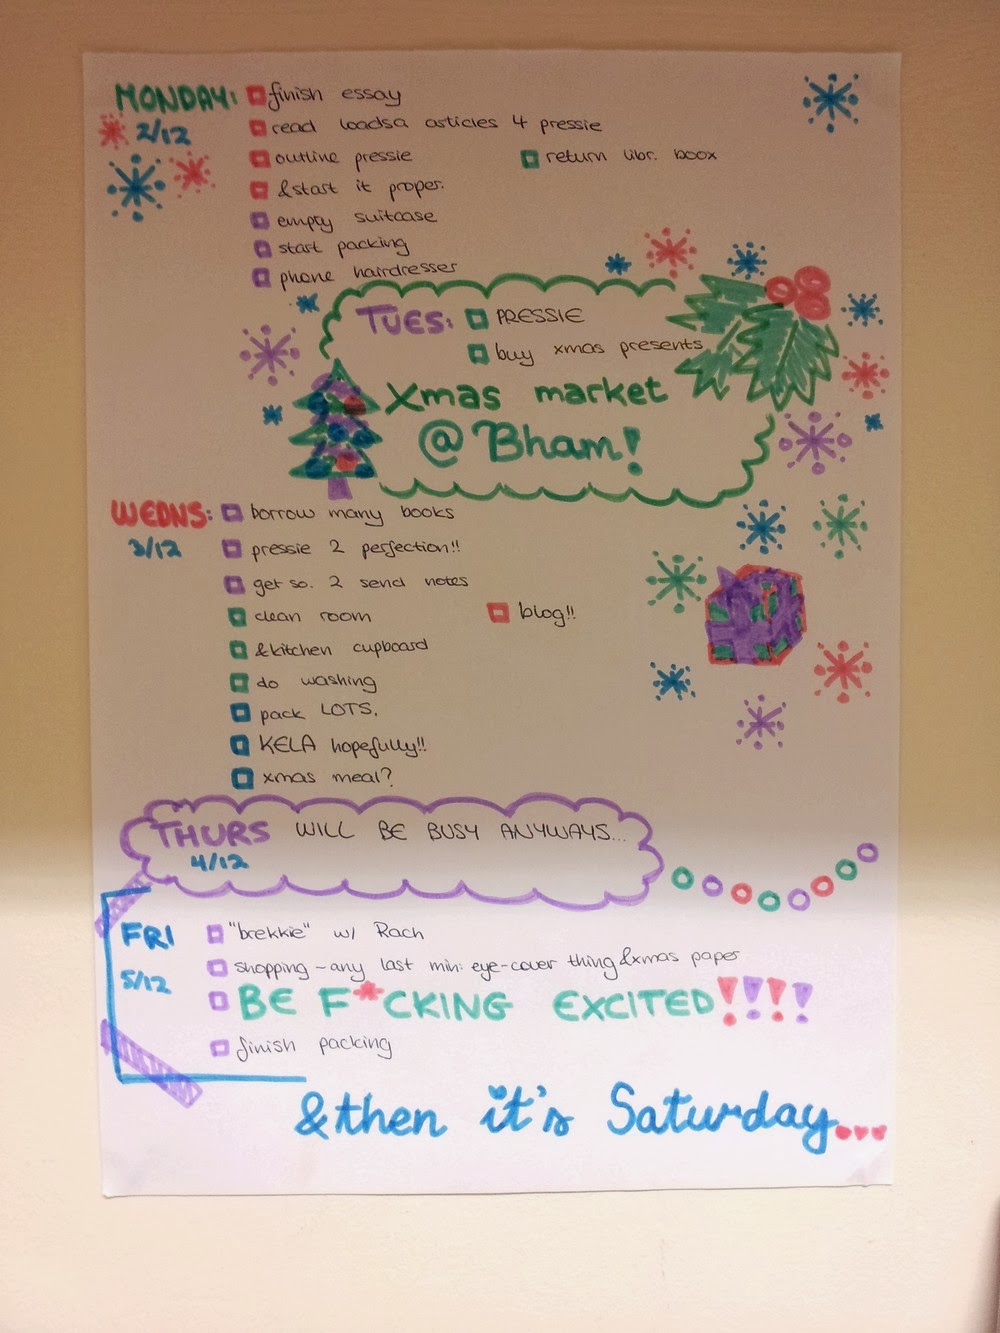 MONDAY: finish essay
2/12 read loadsa articles 4 pressie
outline pressie return libr. boox
&start it proper.
empty suitcase
start packing
phone hairdresser
TUES: PRESSIE
buy xmas presents
Xmas market
@ Bham!
WEDNS: borrow many books
3/12 pressie 2 perfection!!
get so. 2 send notes
clean room blog!!
&kitchen cupboard
do washing
pack LOTS.
KELA hopefully!!
xmas meal?
THURS WILL BE BUSY ANYWAYS...
4/12
FRI "brekkie" w/ Rach
5/12 shopping – any last min: eye-cover thing &xmas paper
BE F*CKING EXCITED!!!!
finish packing
&then it's Saturday...